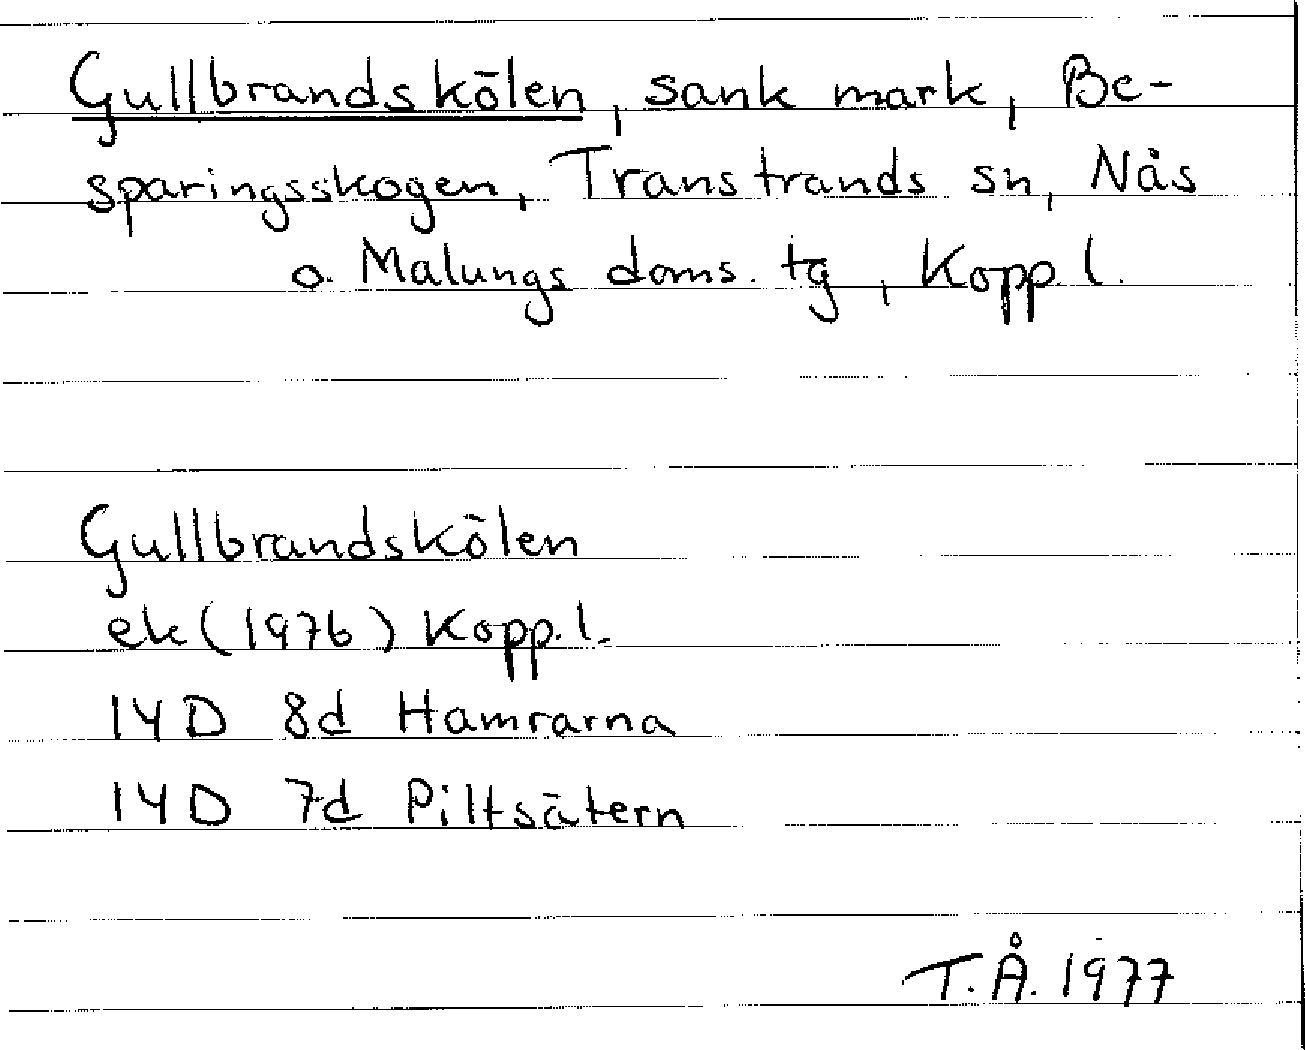 Gullbrandskölen, sank mark, Be-
sparingsskogen, Transtrands sn, Nås
o. Malungs doms. tg, Kopp. l.
Gullbrandskölen
ek (1976) Kopp. l.
14D 8d Hamrarna
14D 7d Piltsätern
T.Å. 1977